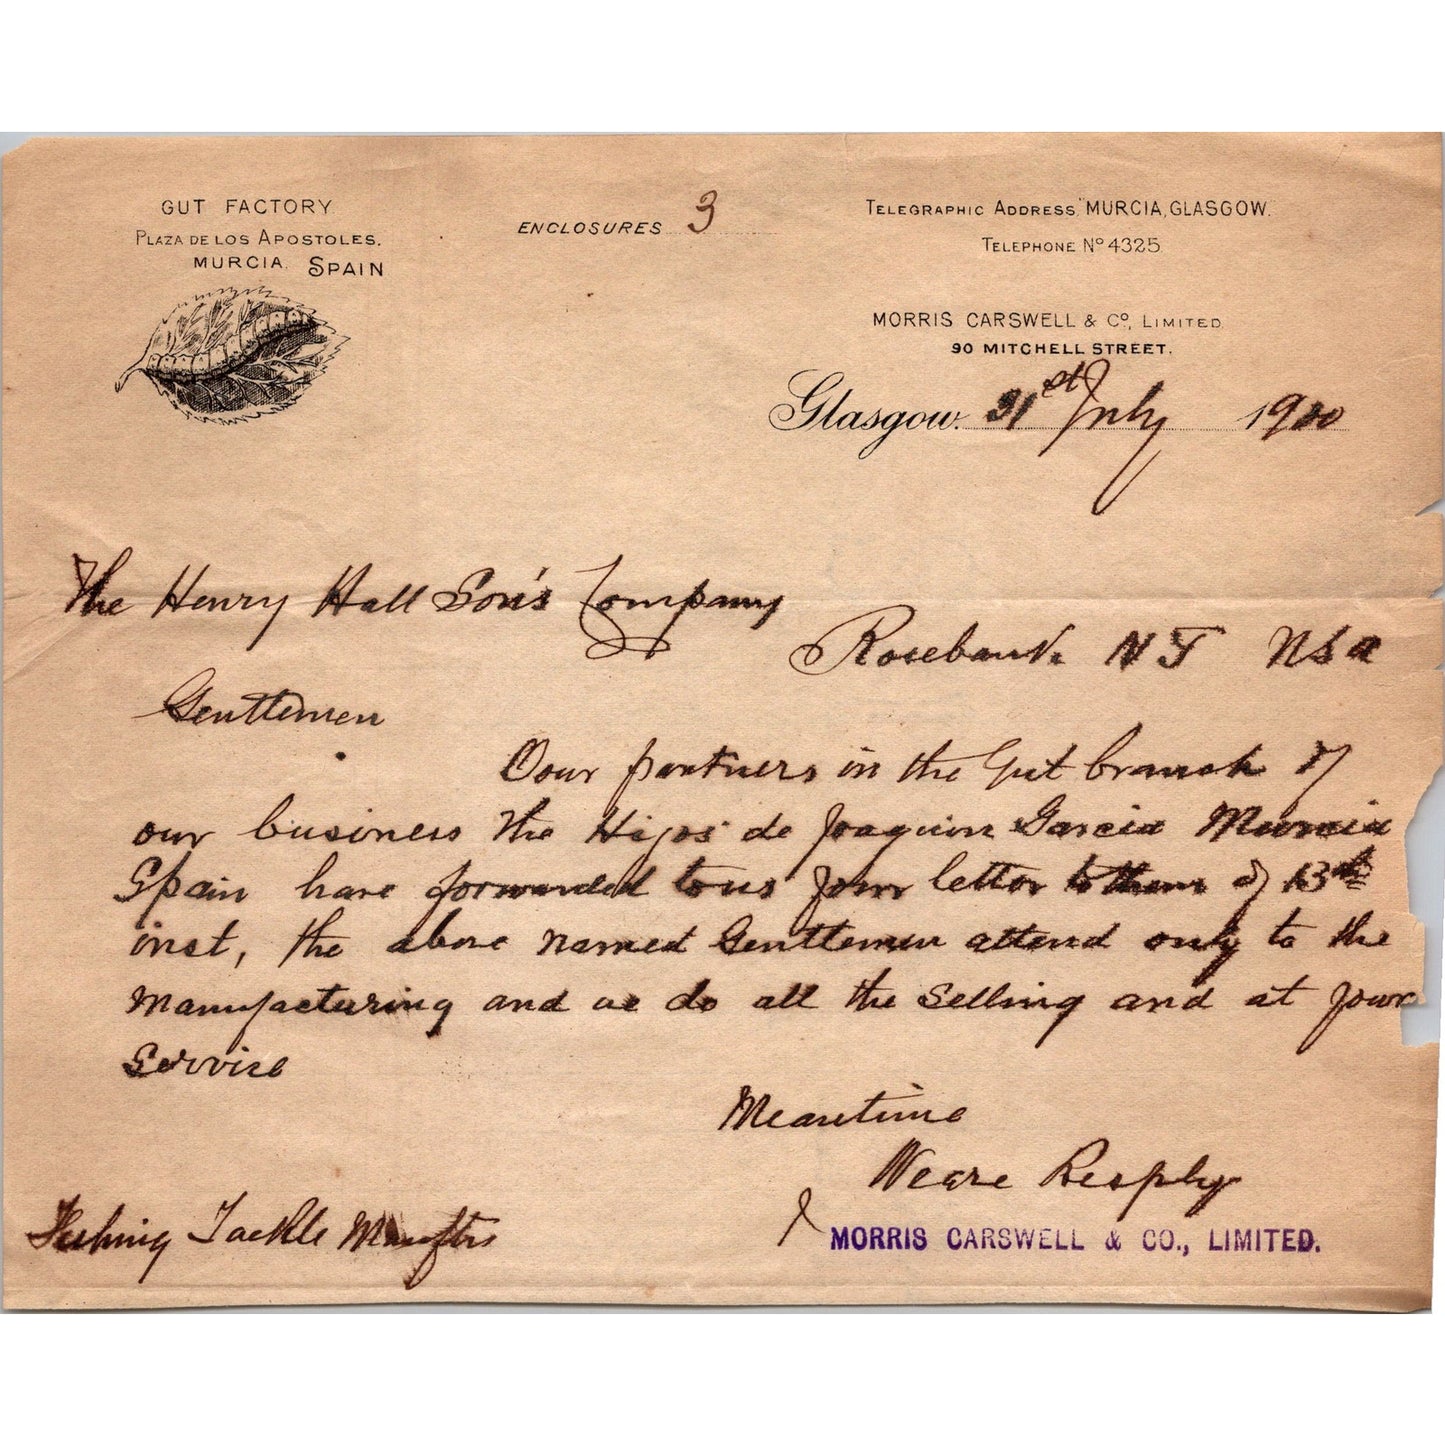 GUT FACTORY
PLAZA DE LOS APOSTOLES.
MURCIA. SPAIN
ENCLOSURES 3
TELEGRAPHIC ADDRESS "MURCIA, GLASGOW.
TELEPHONE No 4325
MORRIS CARSWELL & Co, LIMITED
90 MITCHELL STREET.
Glasgow. 31st July 1900
The Henry Hall Son's Company
Rosebank. N Y USA
Gentlemen
Our partners in the Gut branch of
our business the Hijos de Joaquin Garcia Murcia
Spain have forwarded to us your letter to them of 13th
inst, the above named Gentlemen attend only to the
Manufacturing and we do all the Selling and at your
Service
Meantime
We are Resply
MORRIS CARSWELL & CO., LIMITED.
Fishing Tackle Manftrs